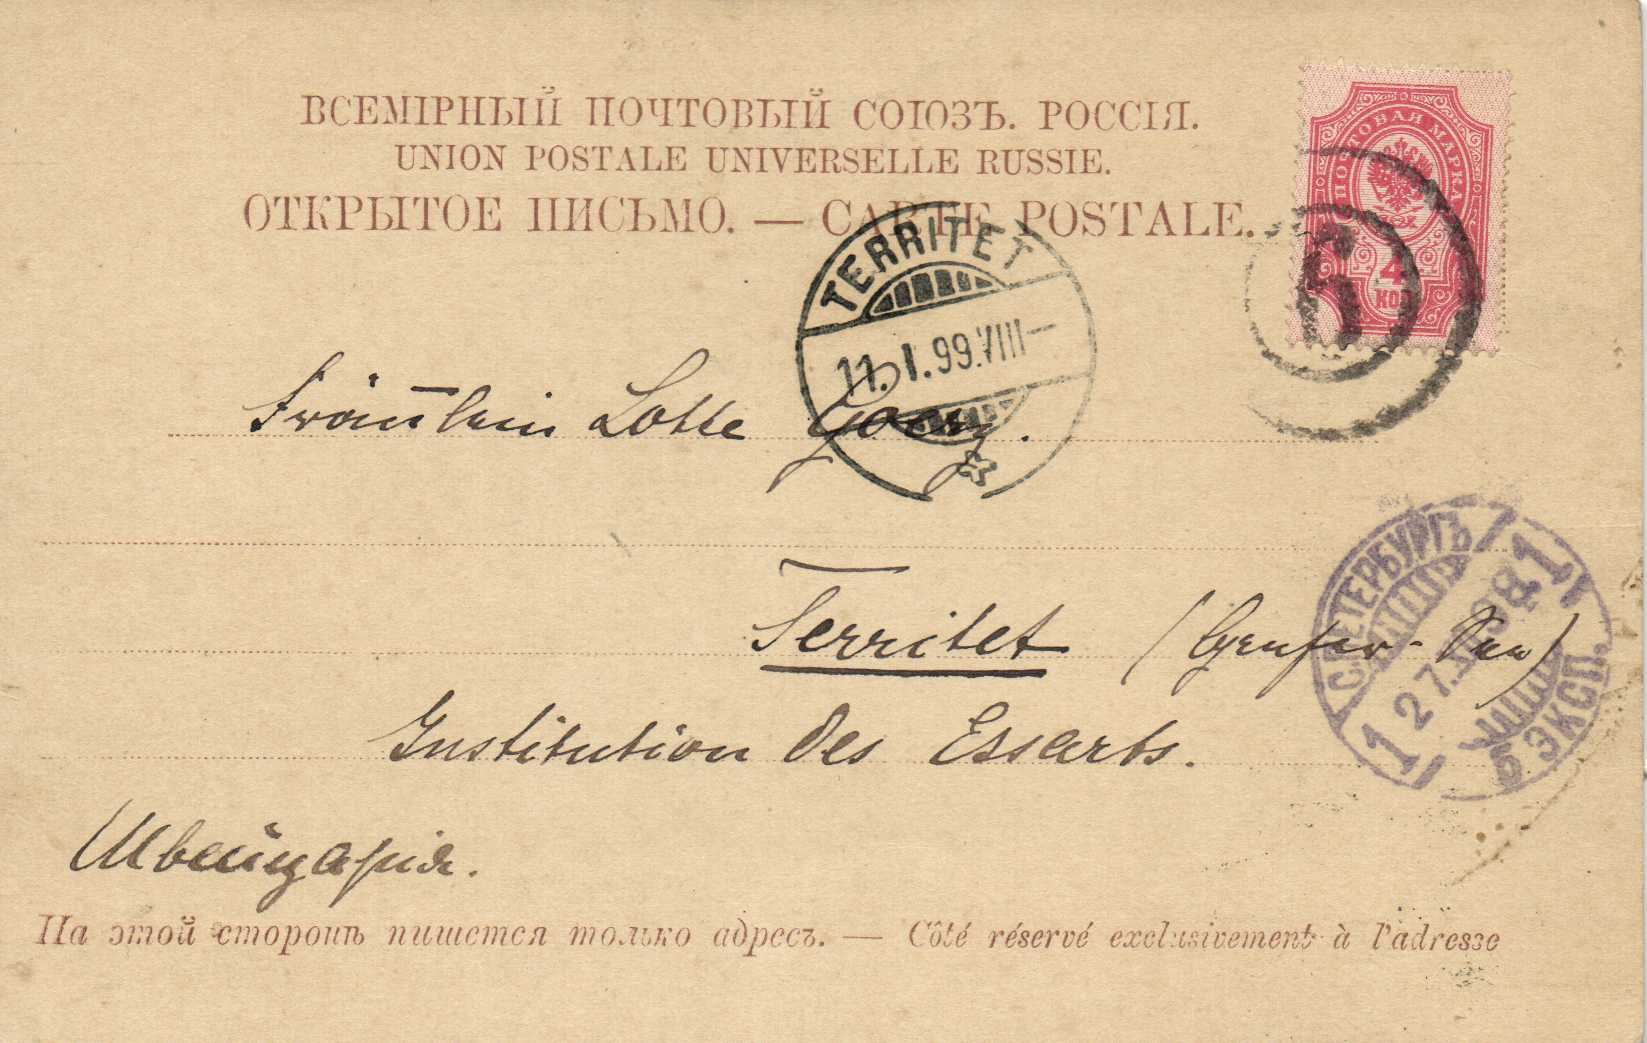 ВСЕМІРНЫЙ ПОЧТОВЫЙ СОЮЗЪ. РОССІЯ.
UNION POSTALE UNIVERSELLE RUSSIE.
ОТКРЫТОЕ ПИСЬМО. — CARTE POSTALE.
ПОЧТОВАЯ МАРКА
4
КОП
5
TERRITET
11.I.99.VIII—
Fräulein Lotte Goerz.
Territet (Genfer-See)
Institution des Essarts.
Швейцарія.
С.ПЕТЕРБУРГЪ
1 27 98 1
6 ЭКСП.
На этой сторонѣ пишется только адресъ. — Côté réservé exclusivement à l'adresse